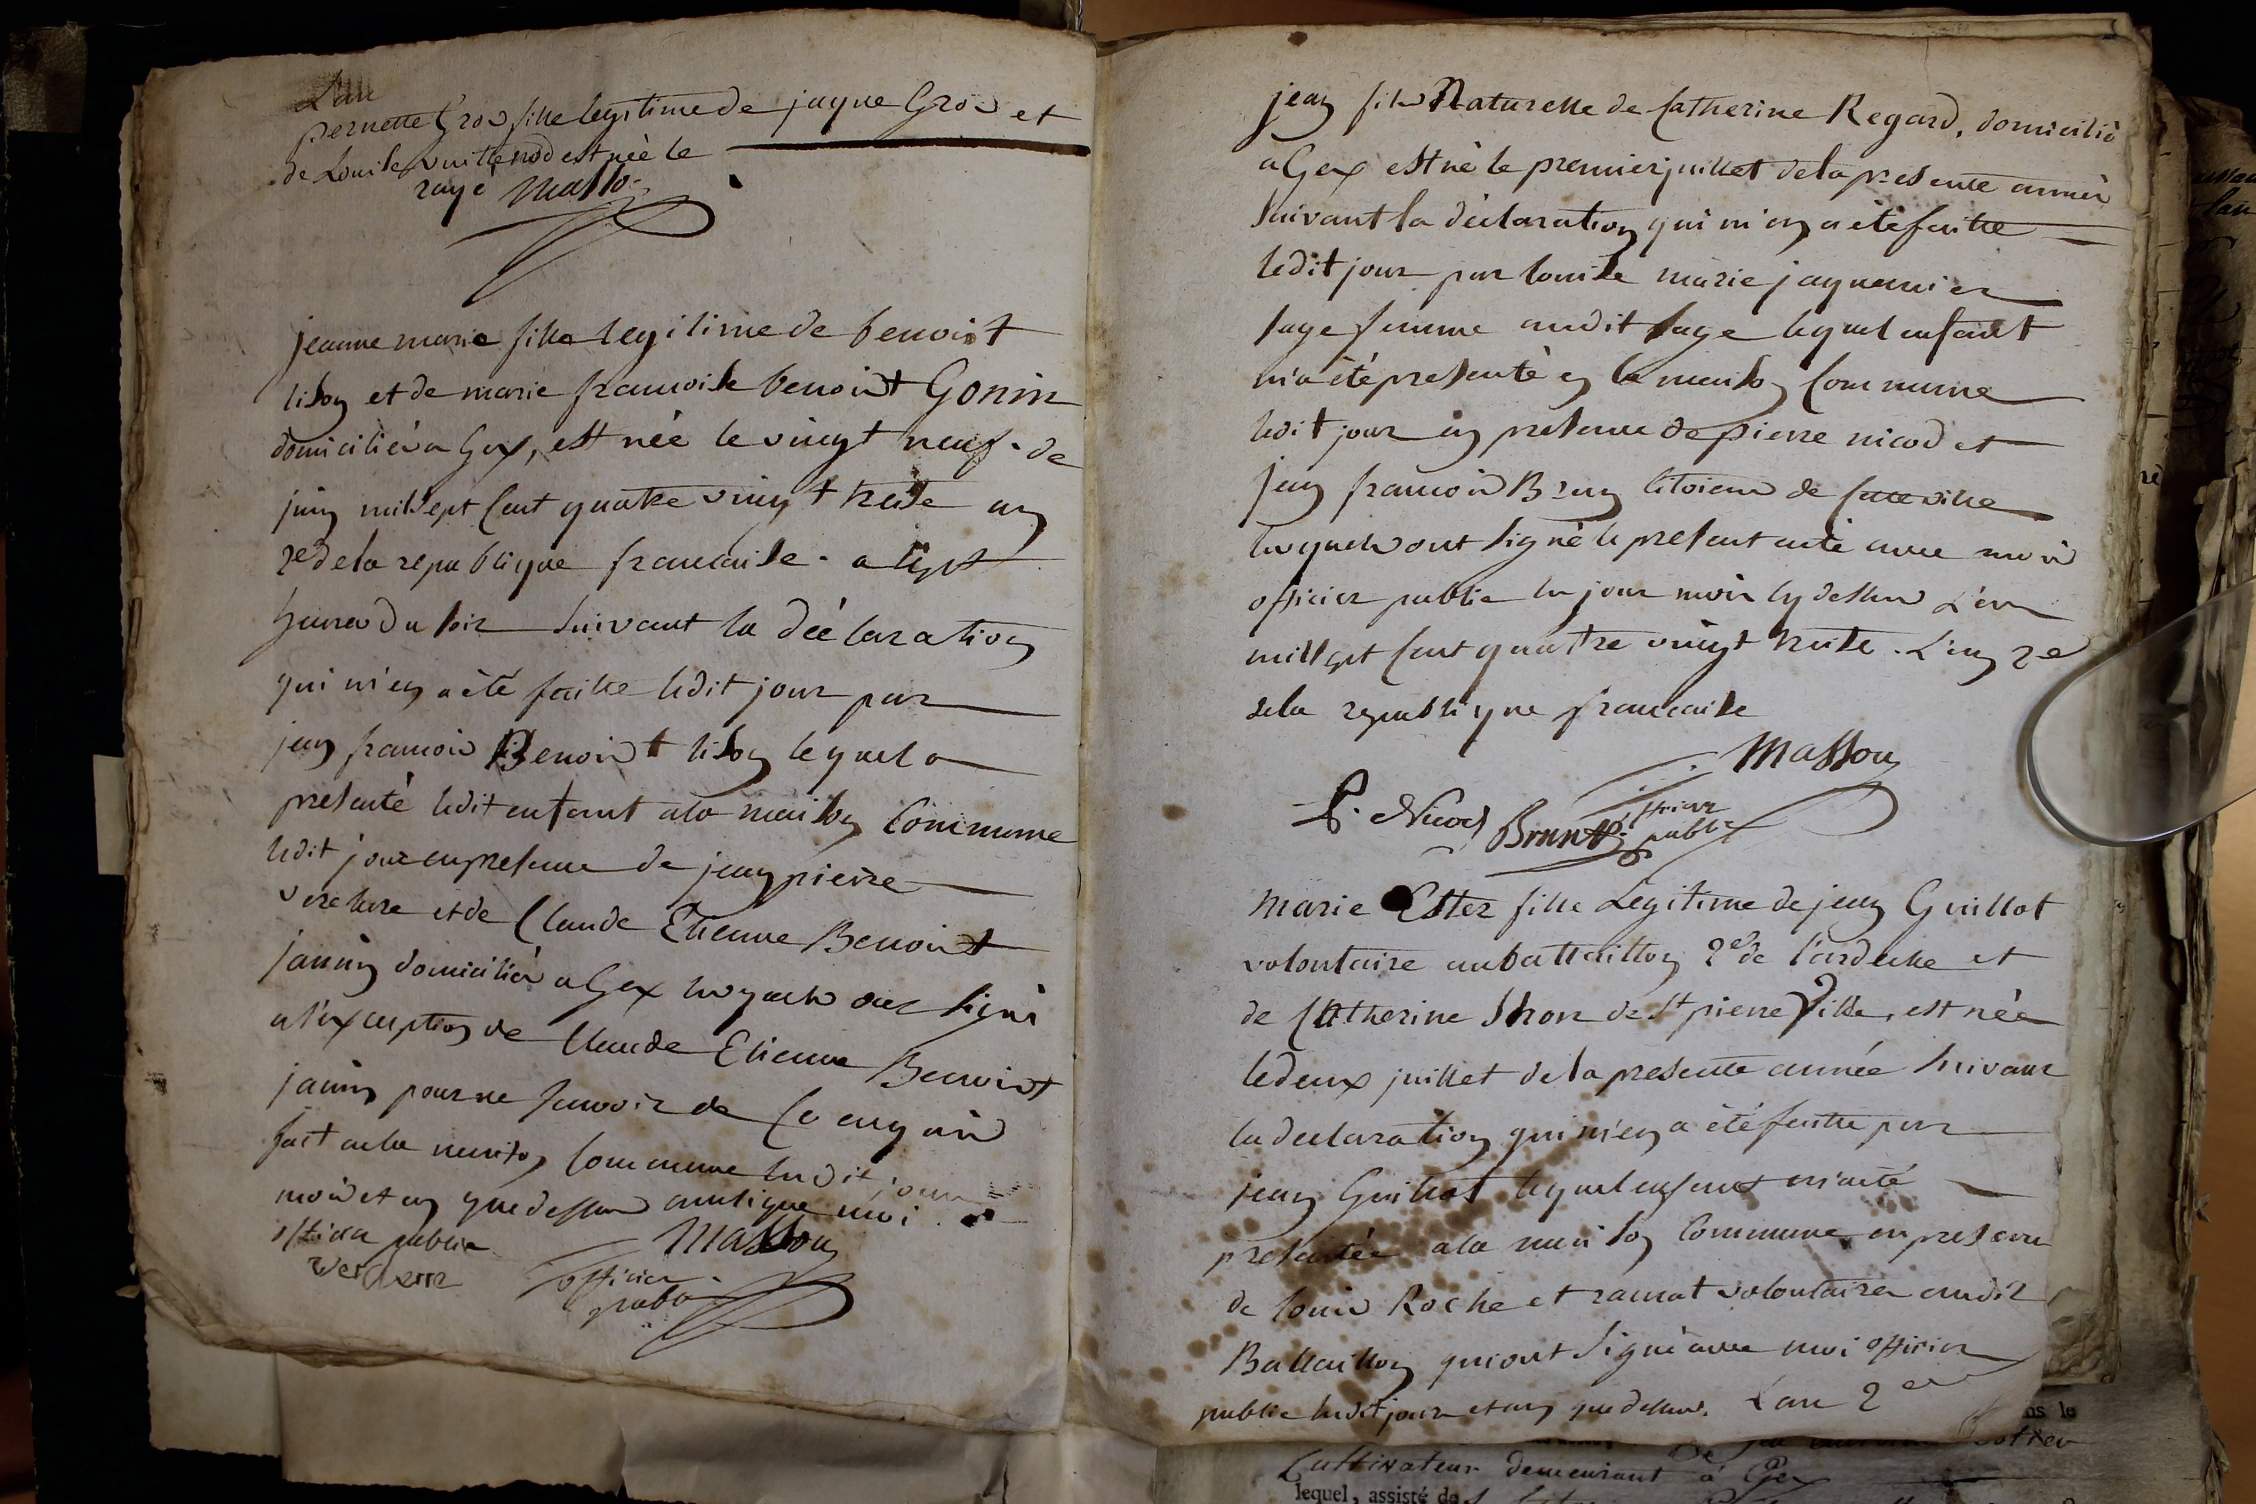 L'an
pernette Gros fille legitime de jaque Gros et
de Louise vuillenod est née le
rayé Masson
jeanne marie fille legitime de benoist
lison et de marie francoise benoist Gonin
domiciliés a Gex, est née le vingt neuf de
juin mil sept cent quatre vingt treise an
2e de la republique francaise a sept
heures du soir suivant la déclaration
qui m'en a été faitte ledit jour par
jean francois Benoist lison lequel a
presenté ledit enfant a la maison Commune
ledit jour en presence de jean pierre
verchere et de Claude Etienne Benoist
janin domiciliés a Gex lesquels ont signé
a l'exception de Claude Etienne Benoist
janin pour ne scavoir de ce enquis
fait en la maison Commune lesdit jour
mois et an que dessus moi
officier public
Masson
Verchere officier
public
jean fils Naturelle de Catherine Regard, domicilié
a Gex est né le premier juillet de la presente année
suivant la déclaration qui m'en a été faitte
ledit jour par louise marie jaquemier
sage femme audit lequel enfant
m'a été presenté en la maison Commune
ledit jour en presence de pierre nicod et
jean francois Brun citoiens de cette ville
lesquels ont signé le present acte avec moi
officier public les jour mois cy dessus L'an
mil sept cent quatre vingt treise. L'an 2e
de la republique francaise
Masson
P. Nicod Brun officier
public
Marie Ester fille Legitime de jean Guillot
volontaire au battaillon 2e de l'ardeche et
de Catherine de St pierre Ville, est née
le deux juillet de la presente année suivant
la declaration qui m'en a été faitte par
jean Guillot lequel enfant m'a été
presentée a la maison Commune en presence
de louis Roche et ramat volontaires audit
Battaillon qui ont signé avec moi officier
public lesdit jour et an que dessus. L'an 2e
Cultivateur demeurant à Gex
lequel, assisté de